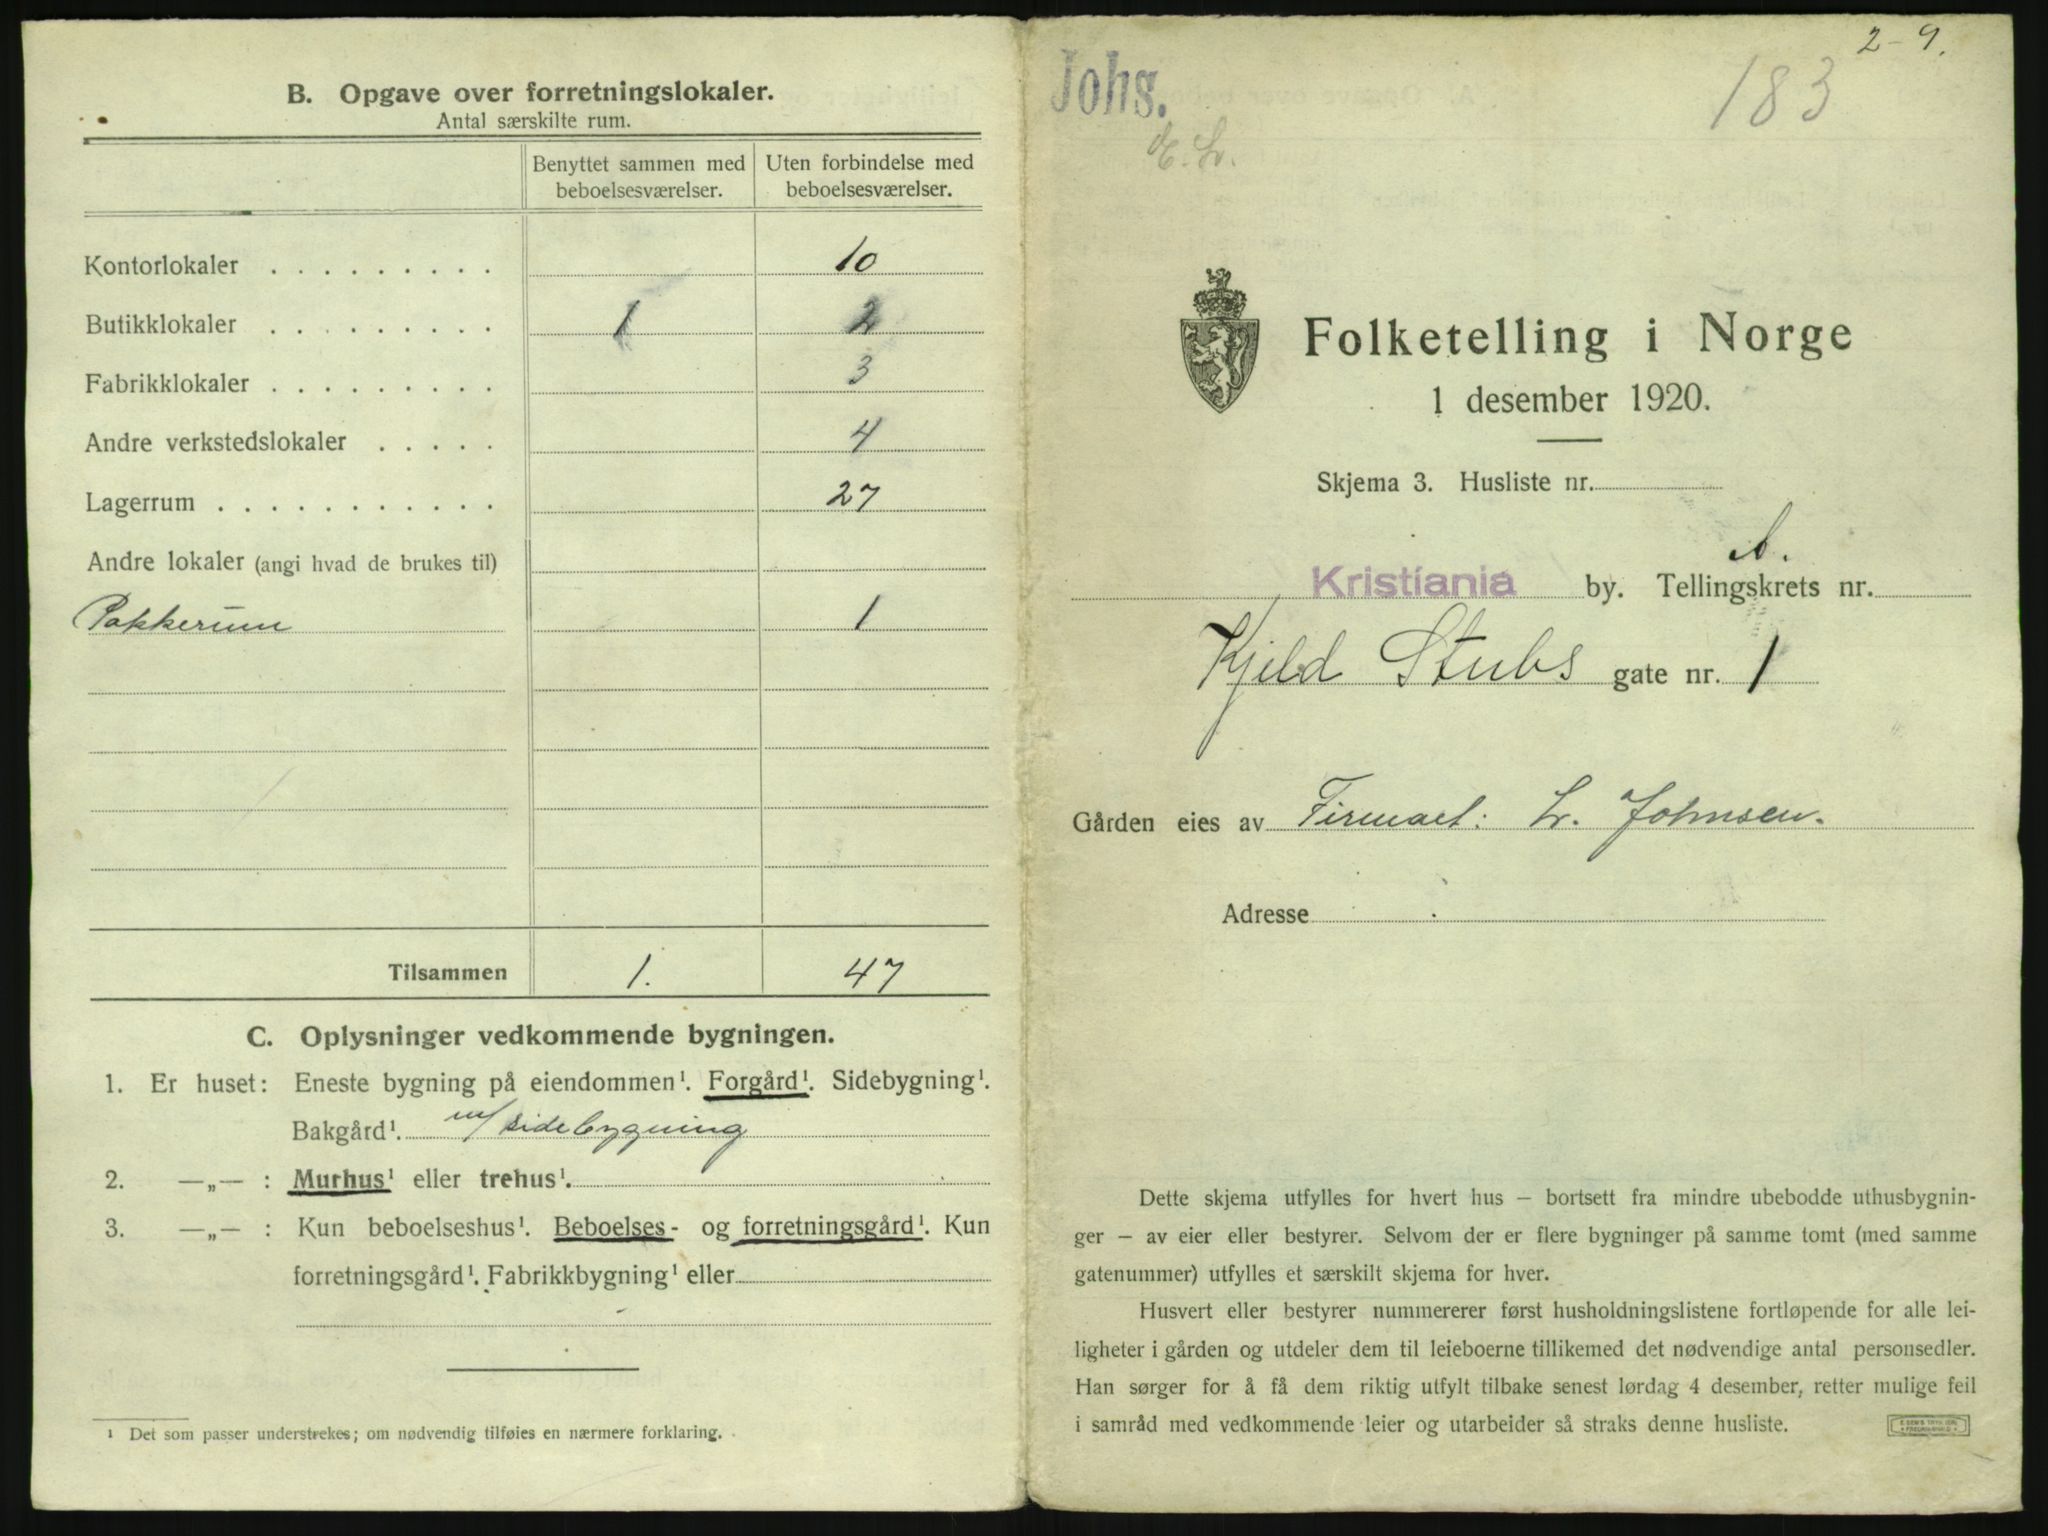 B. Opgave over forretningslokaler.
Antal særskilte rum.
Benyttet sammen med beboelsesværelser.
Uten forbindelse med beboelsesværelser.
Kontorlokaler . . . . . . . . . 10
Butikklokaler . . . . . . . . . 1 2
Fabrikklokaler . . . . . . . . . 3
Andre verkstedslokaler . . . . . 4
Lagerrum . . . . . . . . . . . 27
Andre lokaler (angi hvad de brukes til)
Pakkerum 1
Tilsammen 1. 47
C. Oplysninger vedkommende bygningen.
1. Er huset: Eneste bygning på eiendommen¹. Forgård¹. Sidebygning¹.
Bakgård¹. m/sidebygning
2. —„— : Murhus¹ eller trehus¹.
3. —„— : Kun beboelseshus¹. Beboelses- og forretningsgård¹. Kun
forretningsgård¹. Fabrikkbygning¹ eller
¹ Det som passer understrekes; om nødvendig tilføies en nærmere forklaring.
2-9.
Johs.
183
Folketelling i Norge
1 desember 1920.
Skjema 3. Husliste nr.
A.
Kristiania by. Tellingskrets nr.
Kjeld Stubs gate nr. 1
Gården eies av Firmaet: L. Johnsen.
Adresse
Dette skjema utfylles for hvert hus – bortsett fra mindre ubebodde uthusbygnin-
ger – av eier eller bestyrer. Selvom der er flere bygninger på samme tomt (med samme
gatenummer) utfylles et særskilt skjema for hver.
Husvert eller bestyrer nummererer først husholdningslistene fortløpende for alle lei-
ligheter i gården og utdeler dem til leieboerne tillikemed det nødvendige antal personsedler.
Han sørger for å få dem riktig utfylt tilbake senest lørdag 4 desember, retter mulige feil
i samråd med vedkommende leier og utarbeider så straks denne husliste.